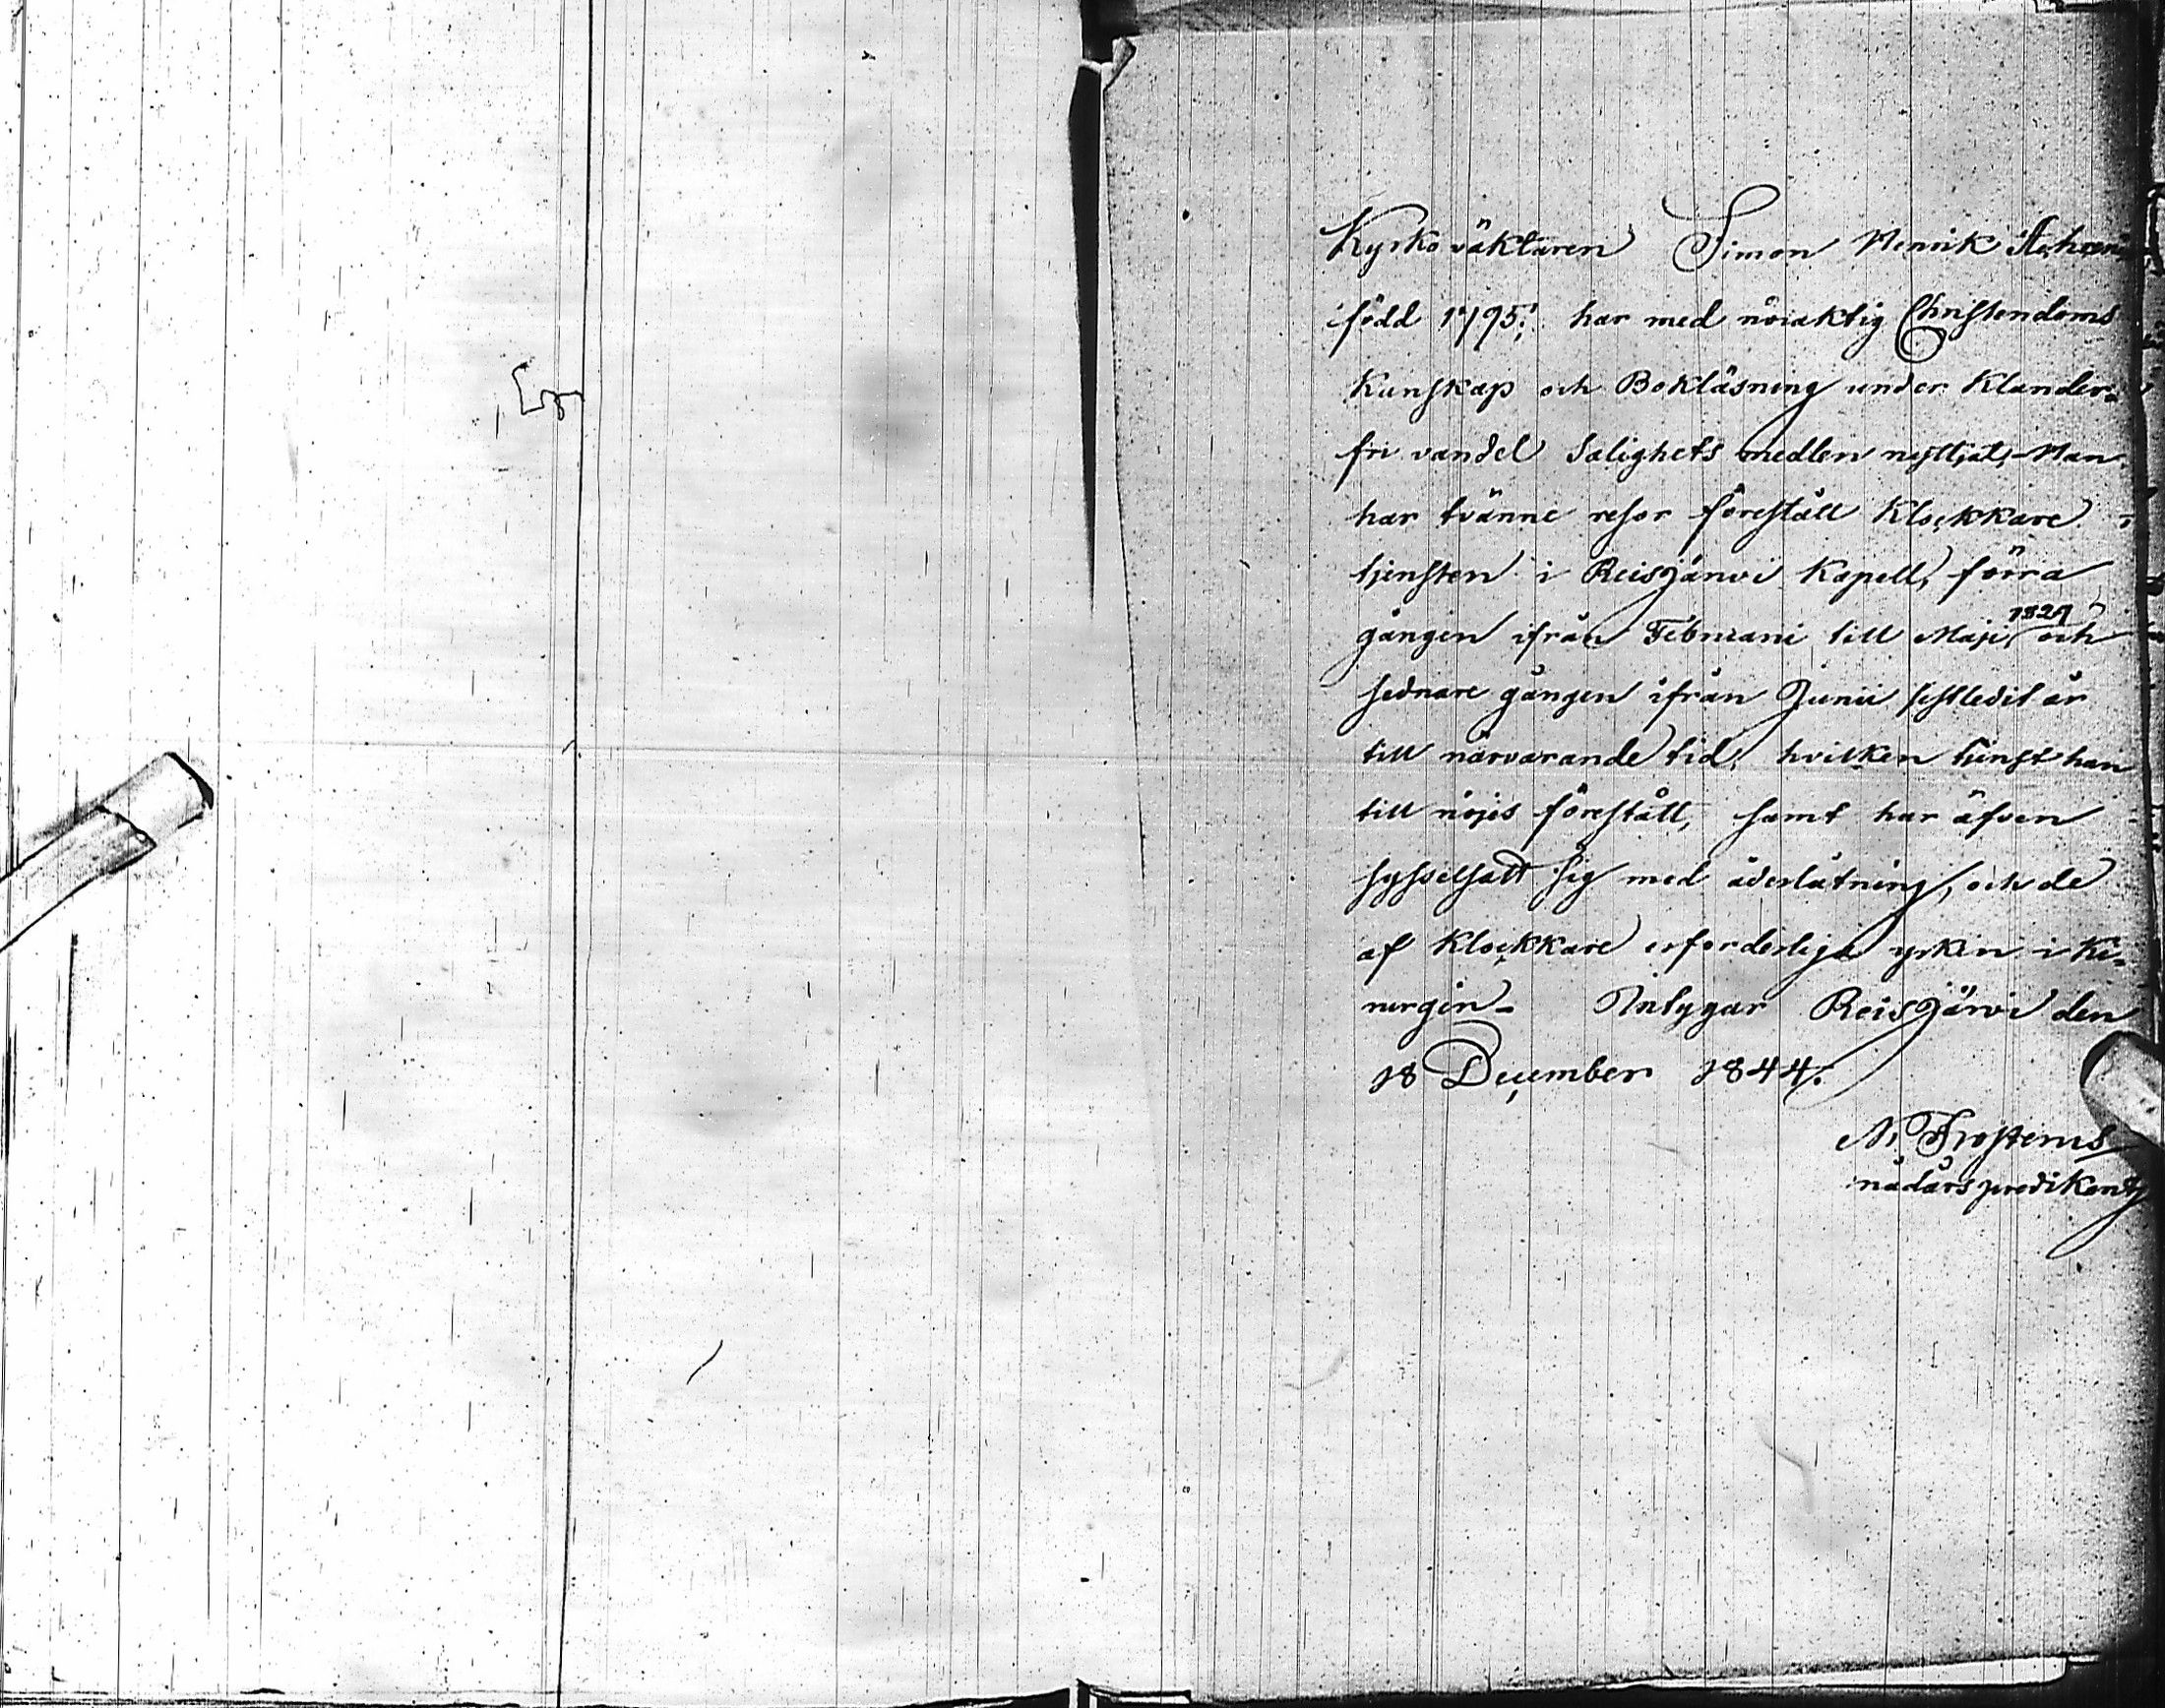 Kyrkoväktaren Simon Henrik
född 1795. har med nöiaktig Christendoms
Kunskap och Bokläsning under Klander=
fri vandel Salighets medlen nyttjat, Han
har tvänne resor förestått Klockkare
tjensten i Reisjärvi Kapell, förra
gången ifrån Februarii till Maji 1829 och
sednare gången ifrån Junii sistledit år
till närvarande tid, hvilken tjenst han
till nöjes förestått, samt har äfven
sysselsatt sig med åderlåtning, och de
af Klockkare erforderliga yrken i Ki=
rurgin - Intygar Reisjärvi den
18 December 1844.
Frosterus
nådårspredikant